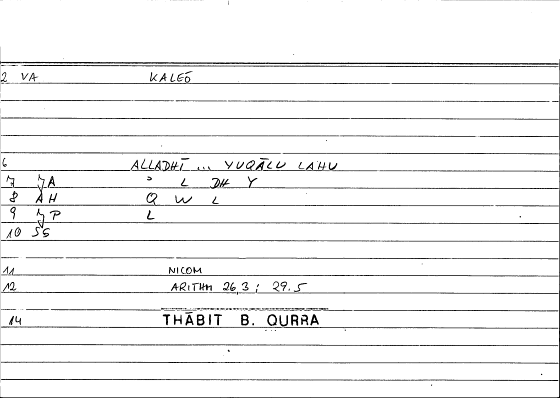 2 VA KALEŌ
6 ALLADHĪ ... YUQĀLU LAHU
7 JA ʾ L DH Y
8 AH Q W L
9 JP L
10 SS
11 NICOM
12 ARITHM 26,3 ; 29.5
14 THĀBIT B. QURRA